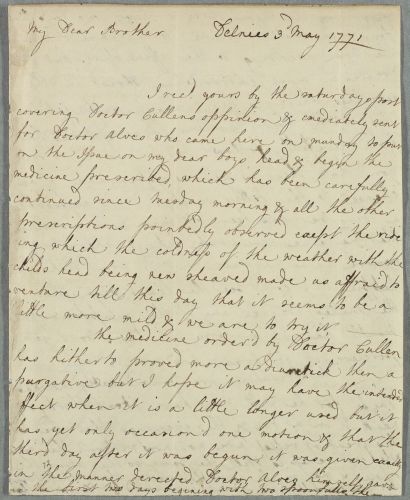 My Dear Brother Delnies 3d May 1771
I recd yours by the saturdays post
covering Doctor Cullens oppinion & emediately sent
for Doctor Alves who came here on munday to put
on the Issue on my dear boys head & begun the
medicine prescribed which has been carefully
continued since tuesday morning & all the other
prescriptions pointedly observed except the ride
ing which the coldness of the weather with the
childs head being new sheaved made us affraid to
venture till this day that it seems to be a
little more mild & we are to try it
the medicine orderd by Doctor Cullen
has hitherto proved more a Diuretick then a
purgative but I hope it may have the intended
effect when it is a little longer used but it
has yet only occasiond one motion & that the
third day after it was begun it was given exactly
in the manner derected Doctor Alves himself gave
it the first two days begining with two spoonfulls the